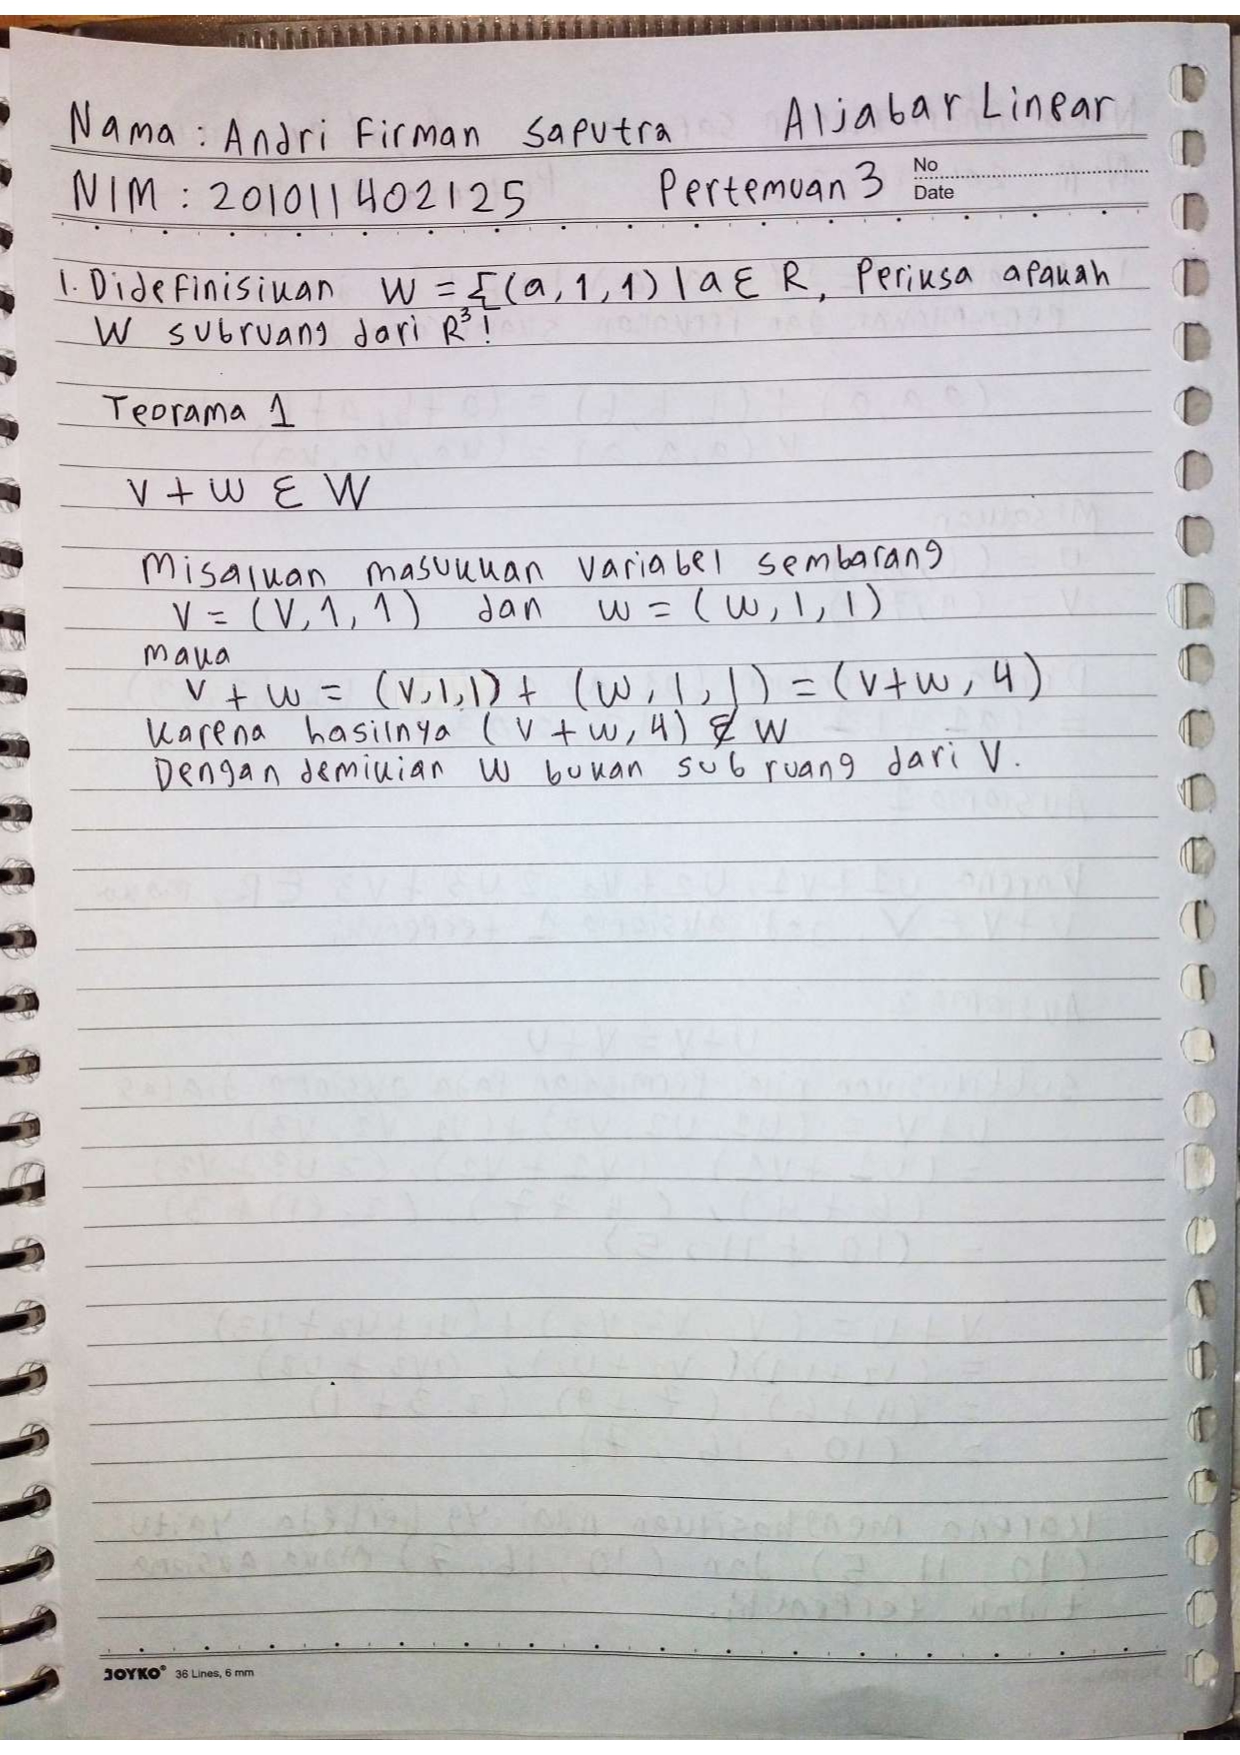 Nama : Andri Firman Saputra Aljabar Linear
NIM : 201011402125 Pertemuan 3 No
Date
1. Didefinisikan W = {(a, 1, 1) | a ∈ R, Periksa apakah
W subruang dari R³!
Teorama 1
v + w ∈ W
Misalkan masukkan variabel sembarang
v = (v, 1, 1) dan w = (w, 1, 1)
maka
v + w = (v, 1, 1) + (w, 1, 1) = (v+w, 4)
Karena hasilnya (v + w, 4) ∉ W
Dengan demikian W bukan sub ruang dari V.
JOYKO® 36 Lines, 6 mm